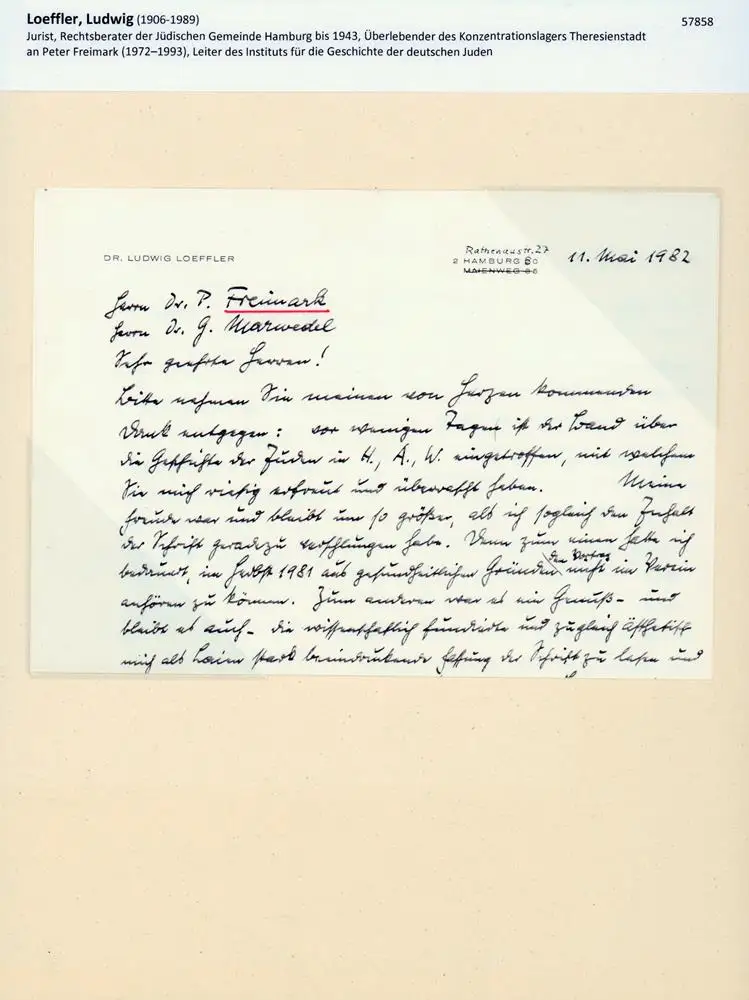 Loeffler, Ludwig (1906-1989)
57858
Jurist, Rechtsberater der Jüdischen Gemeinde Hamburg bis 1943, Überlebender des Konzentrationslagers Theresienstadt
an Peter Freimark (1972–1993), Leiter des Instituts für die Geschichte der deutschen Juden
DR. LUDWIG LOEFFLER
Rathenaustr. 27
2 HAMBURG 60
MAIENWEG
11. Mai 1982
Herrn Dr. P. Freimark
Herrn Dr. G. Marwedel
Sehr geehrte Herren!
Bitte nehmen Sie meinen von Herzen kommenden
Dank entgegen: vor wenigen Tagen ist der Band über
die Geschichte der Juden in H., A., W. eingetroffen, mit welchem
Sie mich riesig erfreut und überrascht haben. Meine
Freude war und bleibt um so größer, als ich sogleich den Inhalt
der Schrift geradezu verschlungen habe. Denn zum einen hatte ich
bedauert, im Herbst 1981 aus gesundheitlichen Gründen den Vortrag nicht im Verein
anhören zu können. Zum anderen war es ein Genuß - und
bleibt es auch - die wissenschaftlich fundierte und zugleich ästhetisch
mich als Laien stark beeindruckende Fassung der Schrift zu lesen und